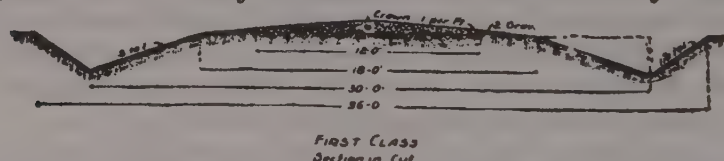 Crown 1 per Ft
3 to 1
12'-0"
18'-0"
30'-0"
36-0
FIRST CLASS
Section in Cut